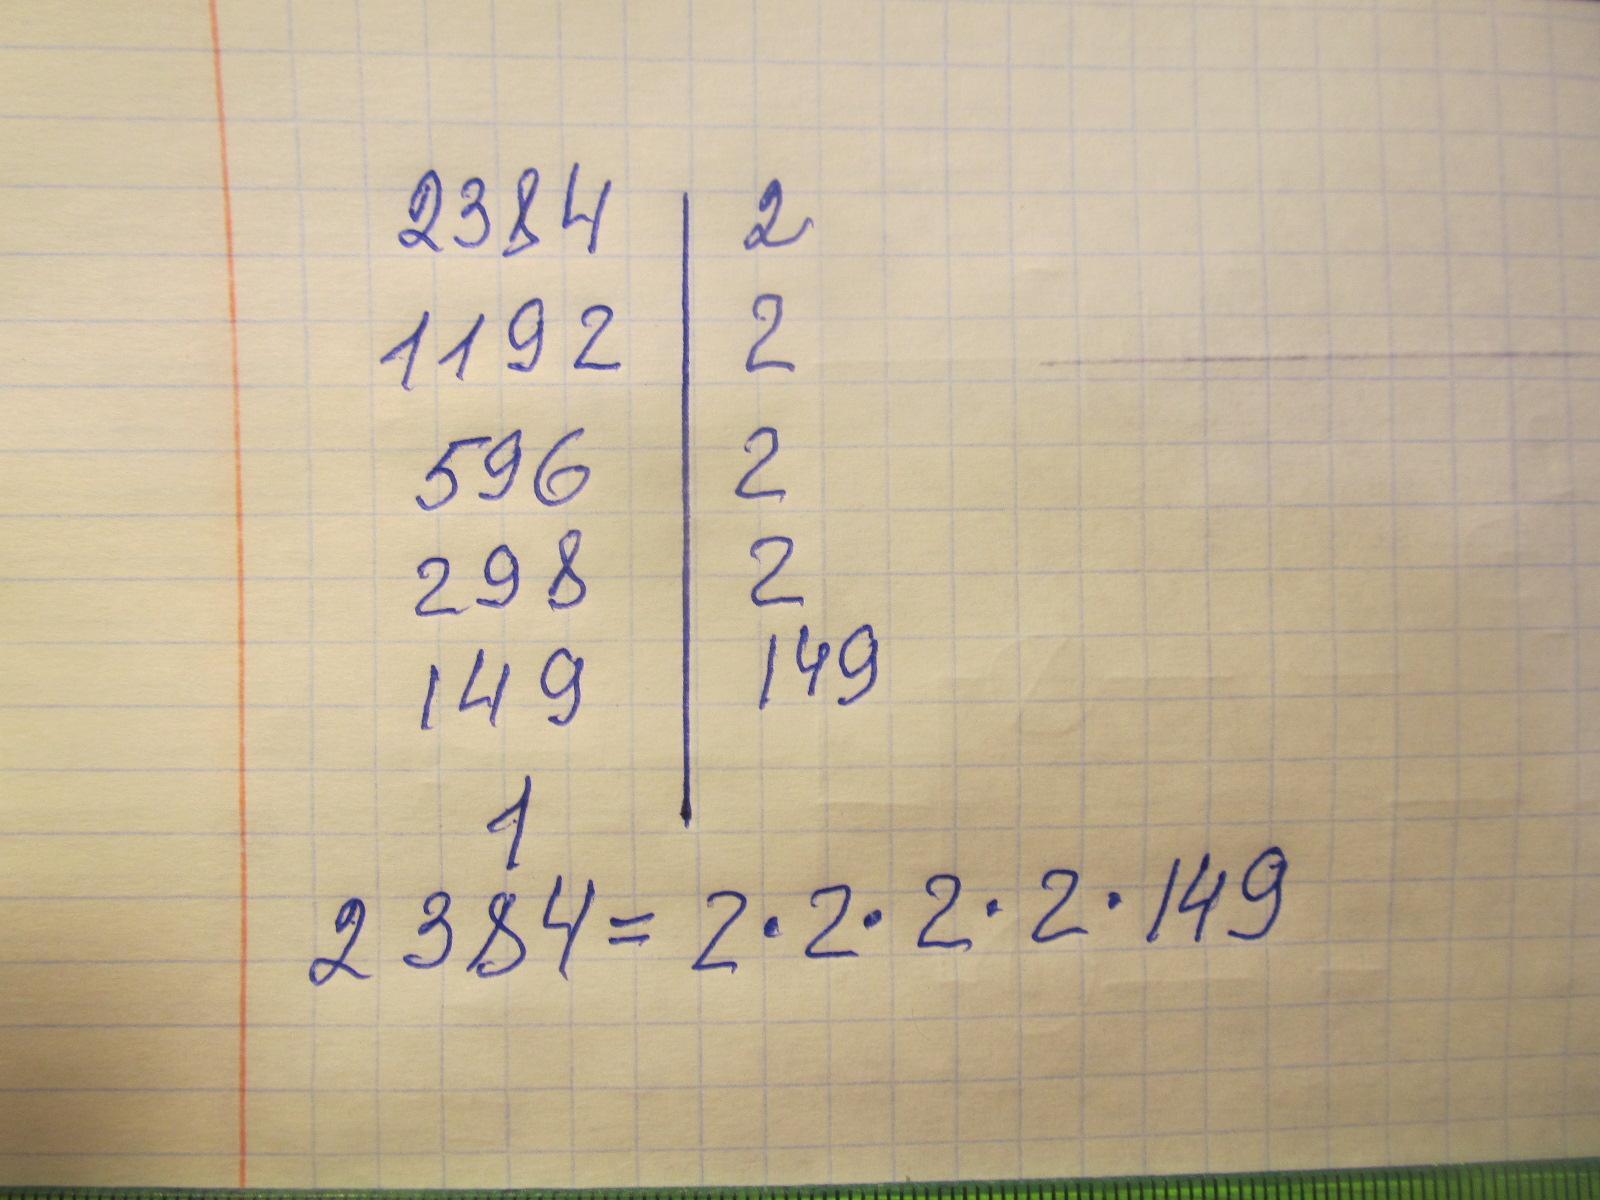 2384 | 2
1192 | 2
596 | 2
298 | 2
149 | 149
1 |
2384 = 2 · 2 · 2 · 2 · 149